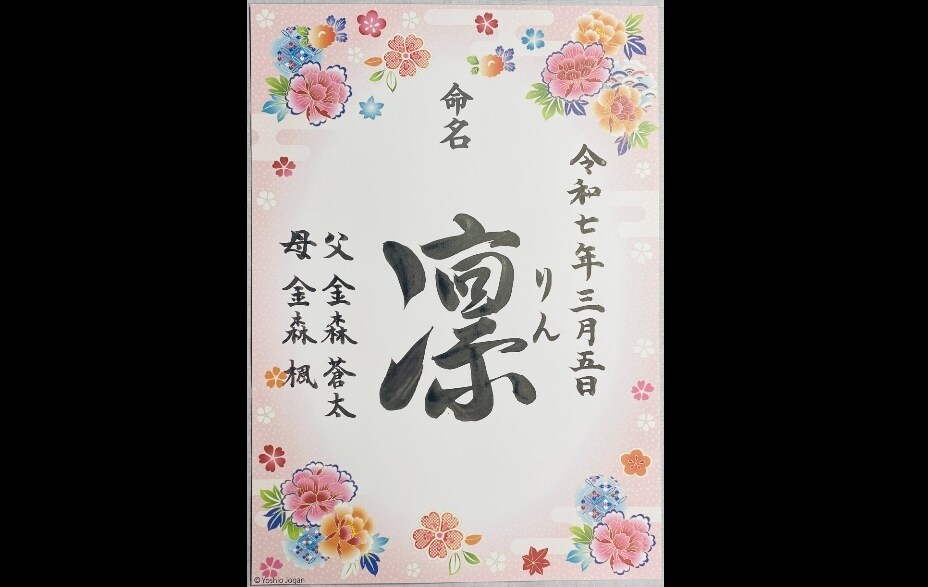 命名
令和七年三月五日
りん
凛
父 金森 蒼太
母 金森 楓
© Yoshio Jogan